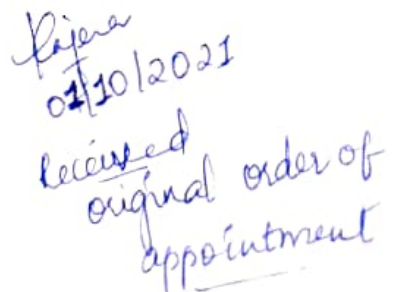 01/10/2021
received
original order of
appointment